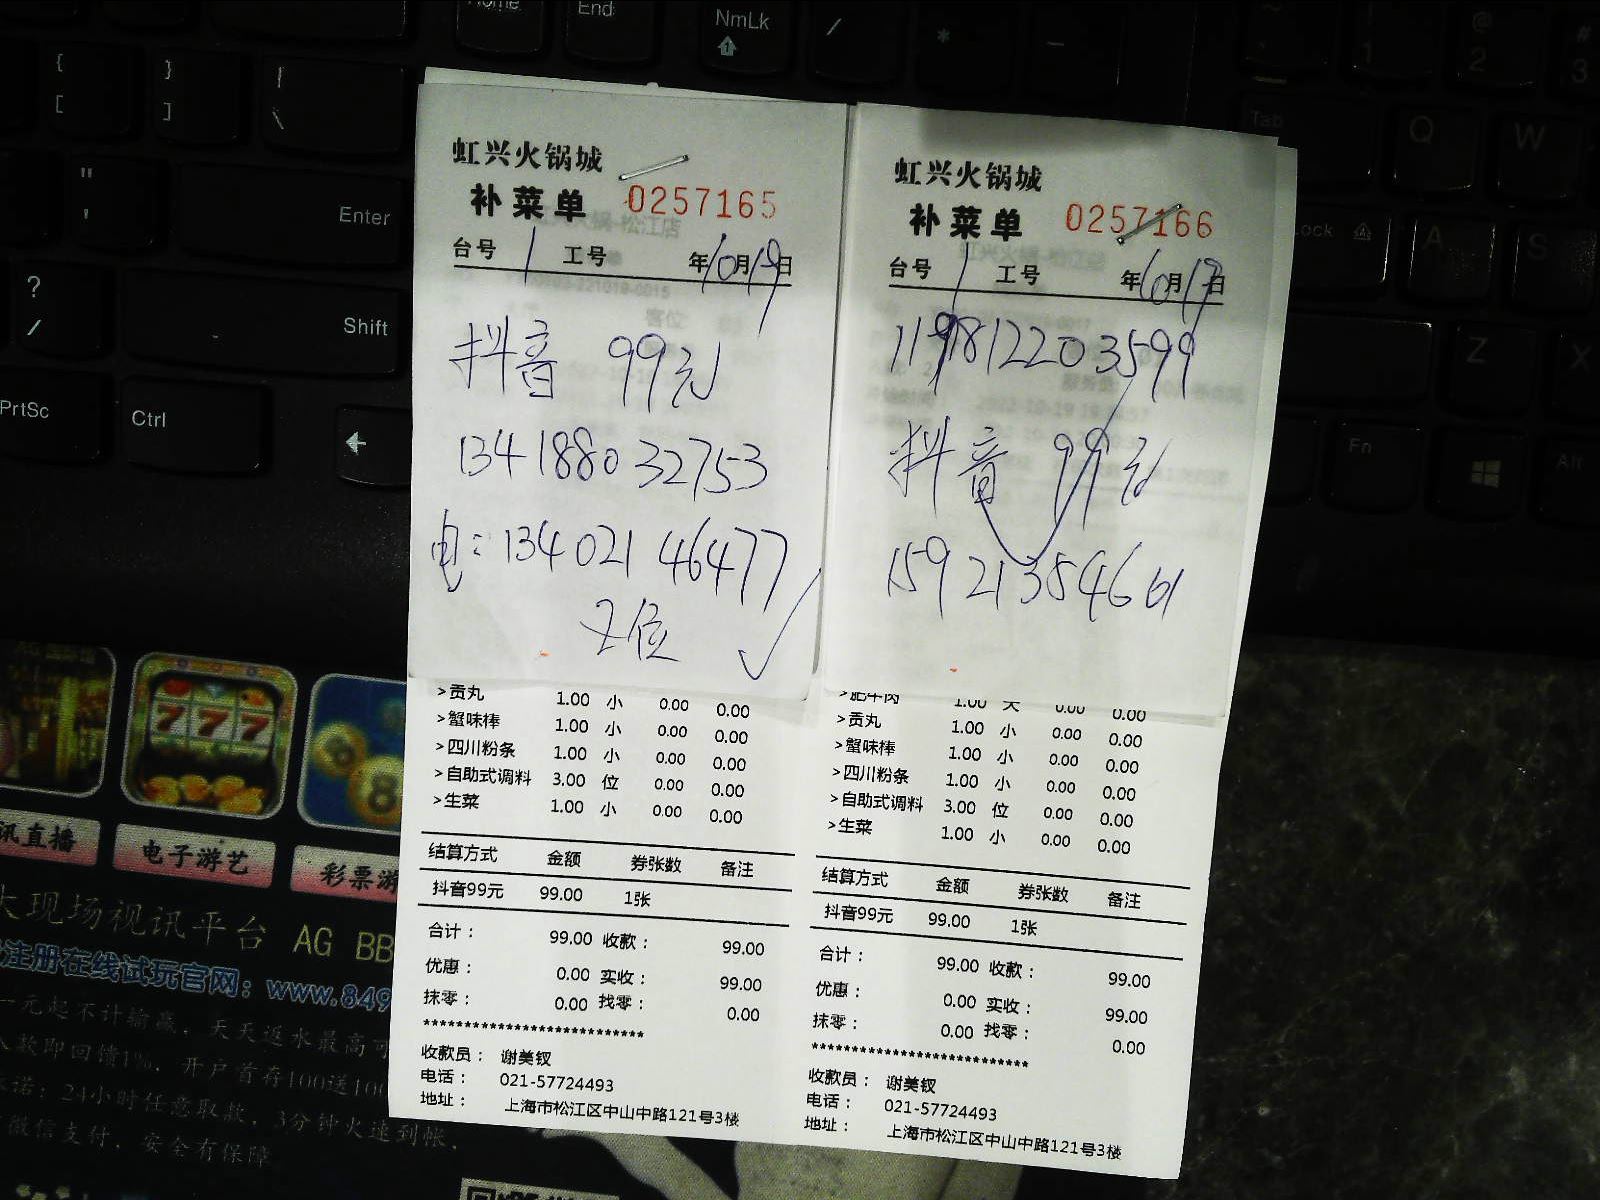 虹兴火锅城
补菜单 0257165
台号 1 工号 年10月19日
抖音 99元
13418803 2753
电:134 021 46477
2位
>贡丸 1.00 小 0.00 0.00
>蟹味棒 1.00 小 0.00 0.00
>四川粉条 1.00 小 0.00 0.00
>自助式调料 3.00 位 0.00 0.00
>生菜 1.00 小 0.00 0.00
结算方式 金额 券张数 备注
抖音99元 99.00 1张
合计: 99.00 收款: 99.00
优惠: 0.00 实收: 99.00
抹零: 0.00 找零: 0.00
***************************
收款员: 谢美钗
电话: 021-57724493
地址: 上海市松江区中山中路121号3楼
虹兴火锅城
补菜单 0257166
台号 1 工号 年10月19日
119812203599
抖音 99元
159 21354601
>肥牛肉 1.00 大 0.00 0.00
>贡丸 1.00 小 0.00 0.00
>蟹味棒 1.00 小 0.00 0.00
>四川粉条 1.00 小 0.00 0.00
>自助式调料 3.00 位 0.00 0.00
>生菜 1.00 小 0.00 0.00
结算方式 金额 券张数 备注
抖音99元 99.00 1张
合计: 99.00 收款: 99.00
优惠: 0.00 实收: 99.00
抹零: 0.00 找零: 0.00
***************************
收款员: 谢美钗
电话: 021-57724493
地址: 上海市松江区中山中路121号3楼
Home End NmLk / * -
{ [ } ] | \
" ' Enter
? / Shift
PrtSc Ctrl
Tab Q W
Lock A S
Z X
Fn Alt
777
8
讯直播 电子游艺 彩票游
大现场视讯平台 AG BB
注册在线试玩官网:www.849
一元起不计输赢,天天返水最高可
款即回馈1%,开户首存100送100
承诺:24小时任意取款,3分钟火速到帐,
微信支付,安全有保障